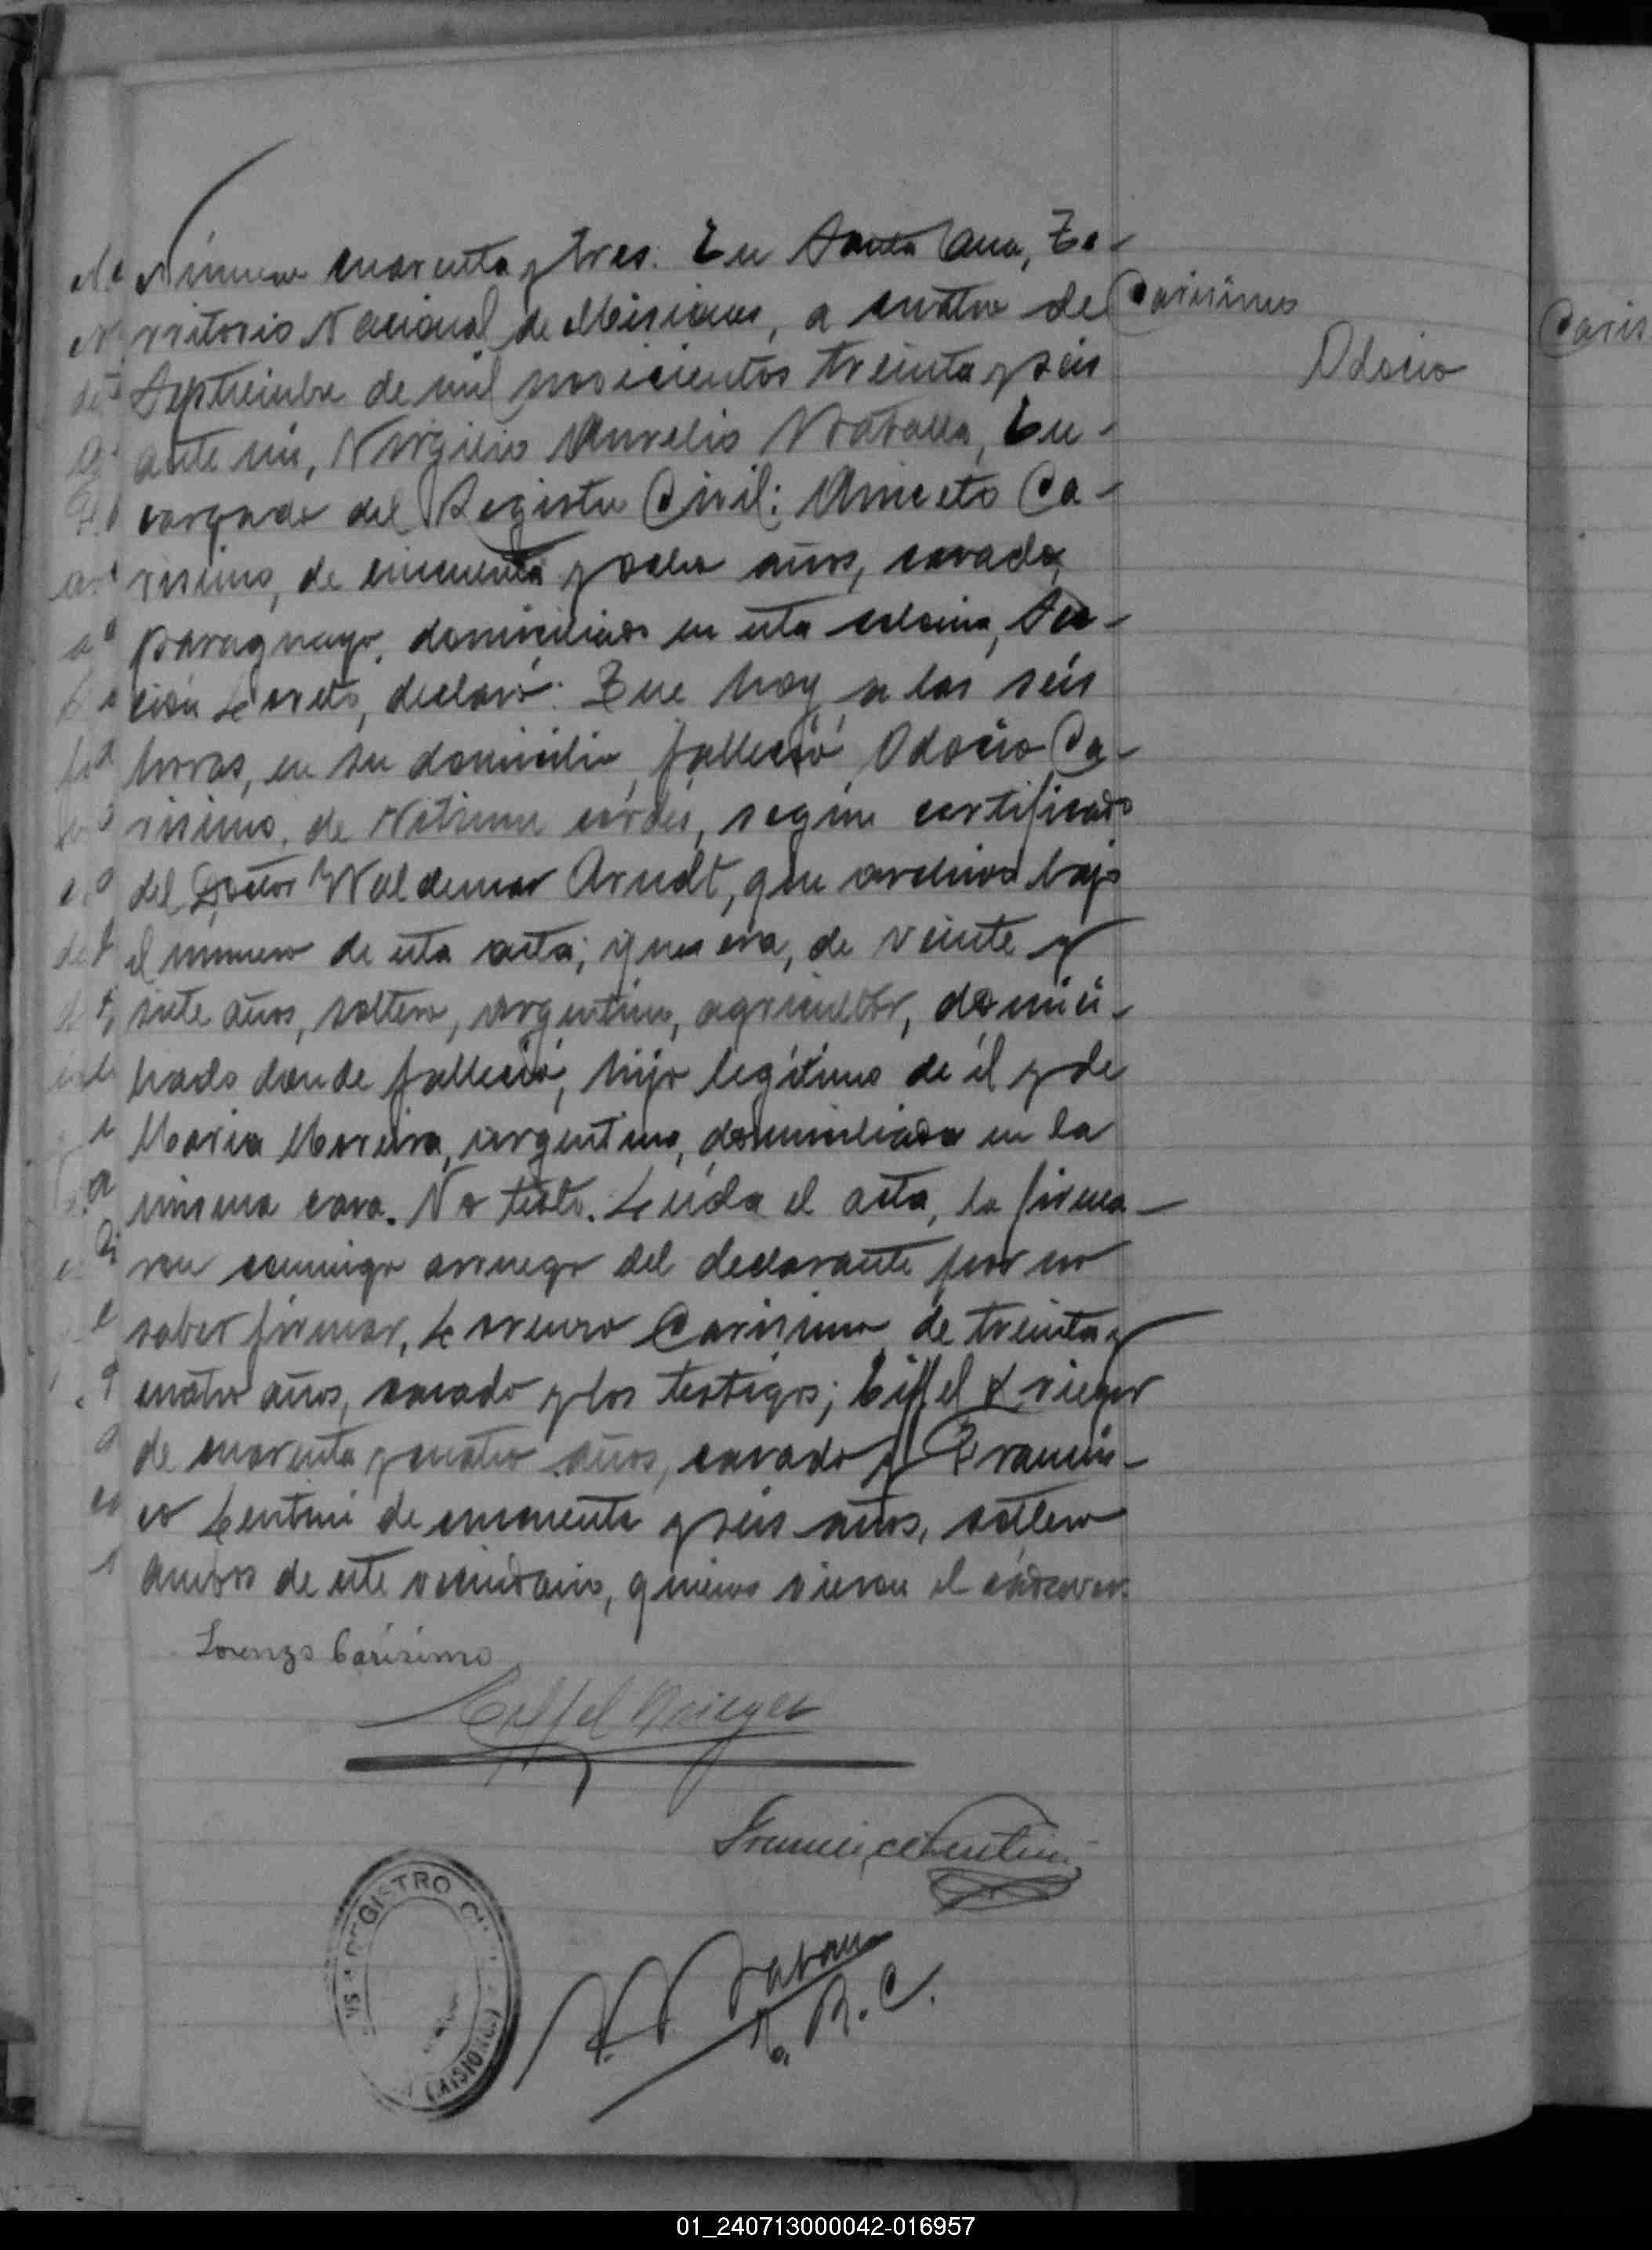 Número cuarenta y tres. En Santa Ana, Te-
rritorio Nacional de Misiones, a cuatro de
Septiembre de mil novecientos treinta y seis
ante mi, Virgilio Aurelio En-
cargado del Registro Civil: Aniceto Ca-
risimo, de cincuenta y ocho años, casado,
paraguayo, domiciliado en esta colonia, Sec-
ción Loreto, declaró: Que hoy a las seis
horas, en su domicilio, falleció Odocio Ca-
risimo, de cordis, según certificado
del Doctor Waldemar Arndt, que archivo bajo
el número de esta acta; que era, de veinte y
siete años, soltero, argentino, agricultor, domici-
liado donde falleció, hijo legítimo de él y de
Maria Moreira, argentina, domiciliada en la
misma casa. No testó. Leída el acta, la firma-
ron conmigo a ruego del declarante por no
saber firmar, Lorenzo Carisimo de treinta y
cuatro años, casado y los testigos; Eiffel Krieger
de cuarenta y cuatro años, casado y Francis-
co Lentini de cincuenta y seis años, soltero
ambos de este vecindario, quienes vieron el cadáver.
Carisimo
Odocio
Caris
Lorenzo Carísimo
Eiffel Krieger
Francisco Lentini
E. R. C.
REGISTRO
01_240713000042-016957